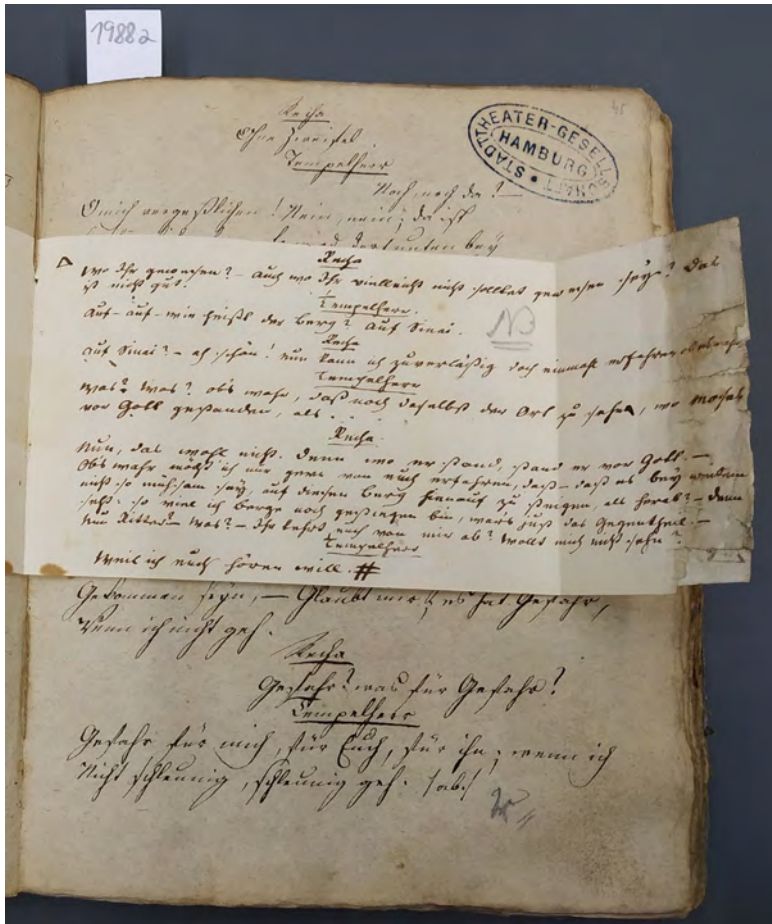 1988a
45
STADTTHEATER-GESELLSCHAFT
HAMBURG
Recha
Ohne Zweifel
Tempelherr
Noch, noch da? —
O mich vergeßlichen! Nein, nein; da ist
dort unten bey
Recha
Wo Ihr gewesen? — Auch wo Ihr vielleicht nicht solltet gewesen seyn? Das
ist nicht gut.
Tempelherr.
Auf — auf — wie heißt der Berg? Auf Sinai.
NB
Recha
Auf Sinai? — ah schön! nun kann ich zuverläßig doch einmahl erfahren
Tempelherr
Was? Was? obs wahr, daß noch daselbst der Ort zu sehn, wo Moses
vor Gott gestanden, als.
Recha.
Nun, das wohl nicht. Denn wo er stand, stand er vor Gott. —
Obs wahr möcht ich nur gern von euch erfahren, daß — daß es bey weitem
nicht so mühsam sey, auf diesen Berg hinauf zu steigen, als herab? — Denn
seht: so viel ich Berge noch gestiegen bin, wars just das Gegentheil. —
Nun Ritter — Was? — Ihr kehrt euch von mir ab? Wollt mich nicht sehn?
Tempelherr
Weil ich euch hören will. #
Gekommen seyn, — Glaubt mir, es hat Gefahr,
Wenn ich nicht geh.
Recha
Gefahr? was für Gefahr?
Tempelherr
Gefahr für mich, für Euch, für ihn; wenn ich
Nicht schleunig, schleunig geh. (ab.)